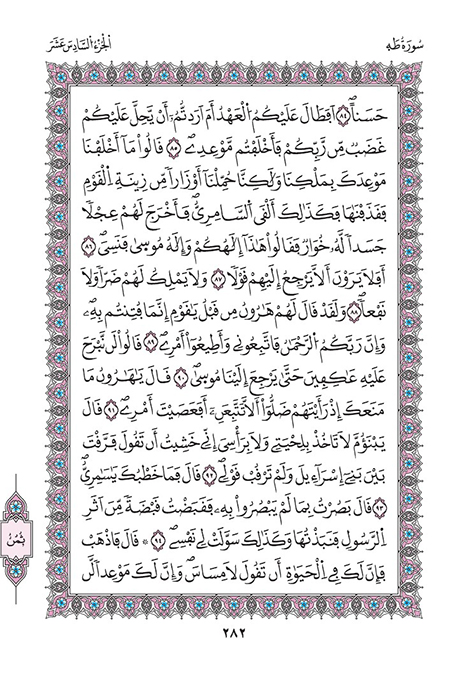 سُورَةُ طَهَ
اَلْجُزْءُ اَلسَّادِسَ عَشَرَ
حَسَناًۖ ۝٨٤ اَفَطَالَ عَلَيْكُمُ اُلْعَهْدُ أَمَ اَرَدتُّمُۥٓ أَنْ يَّحِلَّ عَلَيْكُمْ
غَضَبٌ مِّن رَّبِّكُمْ فَأَخْلَفْتُم مَّوْعِدِےۖ ۝٨٥ قَالُواْ مَآ أَخْلَفْنَا
مَوْعِدَكَ بِمَلْكِنَا وَلَٰكِنَّا حُمِّلْنَآ أَوْزَاراٗ مِّن زِينَةِ اِلْقَوْمِ
فَقَذَفْنَٰهَا فَكَذَٰلِكَ أَلْقَى اَلسَّامِرِيُّۖ فَأَخْرَجَ لَهُمْ عِجْلاٗ
جَسَداٗ لَّهُۥ خُوَارٞ فَقَالُواْ هَٰذَآ إِلَٰهُكُمْ وَإِلَٰهُ مُوسَىٰ فَنَسِيَۖ ۝٨٦
أَفَلَا يَرَوْنَ أَلَّا يَرْجِعُ إِلَيْهِمْ قَوْلاٗ ۝٨٧ وَلَا يَمْلِكُ لَهُمْ ضَرّاٗ وَلَا
نَفْعاٗۖ ۝٨٨ وَلَقَدْ قَالَ لَهُمْ هَٰرُونُ مِن قَبْلُ يَٰقَوْمِ إِنَّمَا فُتِنتُم بِهِۦۖ
وَإِنَّ رَبَّكُمُ اُلرَّحْمَٰنُ فَاتَّبِعُونِے وَأَطِيعُوٓاْ أَمْرِےۖ ۝٨٩ قَالُواْ لَن نَّبْرَحَ
عَلَيْهِ عَٰكِفِينَ حَتَّىٰ يَرْجِعَ إِلَيْنَا مُوسَىٰۖ ۝٩٠ قَالَ يَٰهَٰرُونُ مَا
مَنَعَكَ إِذْ رَأَيْتَهُمْ ضَلُّوٓاْ أَلَّا تَتَّبِعَنِۦٓ أَفَعَصَيْتَ أَمْرِےۖ ۝٩١ قَالَ
يَبْنَؤُمَّ لَا تَاخُذْ بِلِحْيَتِے وَلَا بِرَأْسِيَ إِنِّے خَشِيتُ أَن تَقُولَ فَرَّقْتَ
بَيْنَ بَنِےٓ إِسْرَآءِيلَ وَلَمْ تَرْقُبْ قَوْلِےۖ ۝٩٢ قَالَ فَمَا خَطْبُكَ يَٰسَٰمِرِيُّۖ
۝٩٣ قَالَ بَصُرْتُ بِمَا لَمْ يَبْصُرُواْ بِهِۦ فَقَبَضْتُ قَبْضَةٗ مِّنَ اَثَرِ
اِلرَّسُولِ فَنَبَذْتُهَا وَكَذَٰلِكَ سَوَّلَتْ لِے نَفْسِےۖ ۝٩٤ ۞ قَالَ فَاذْهَبْ
فَإِنَّ لَكَ فِے اِلْحَيَوٰةِ أَن تَقُولَ لَا مِسَاسَۖ وَإِنَّ لَكَ مَوْعِداٗ لَّن
ثُمُنْ
٢٨٢